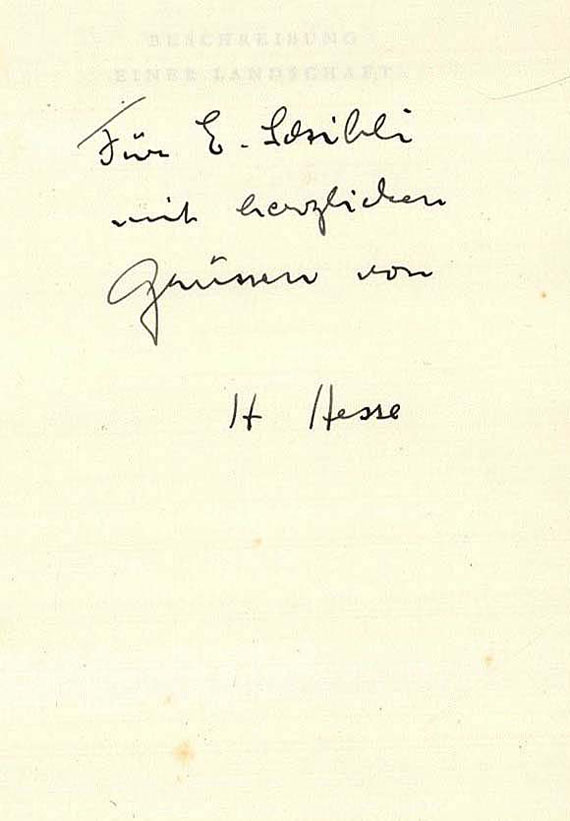 BESCHREIBUNG
EINER LANDSCHAFT
Für E.
mit herzlichen
Grüssen von
H Hesse